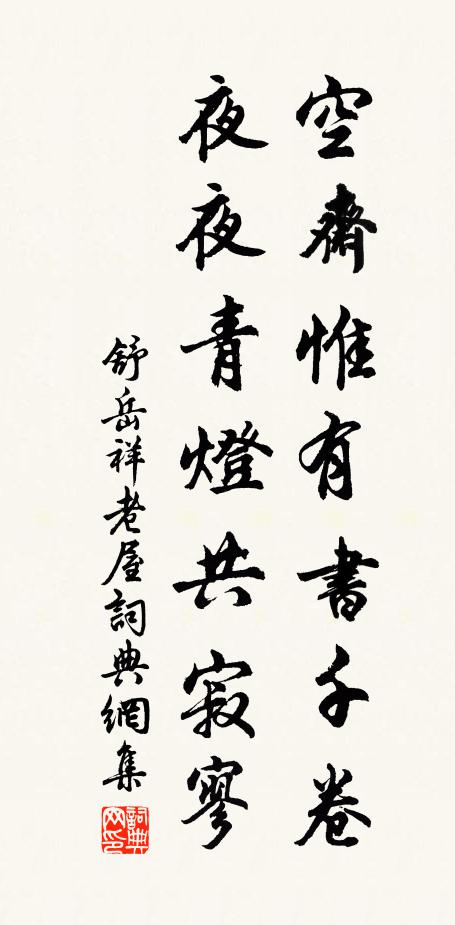 空齋惟有書千卷
夜夜青燈共寂寥
舒岳祥老屋詞典網集
詞典网印